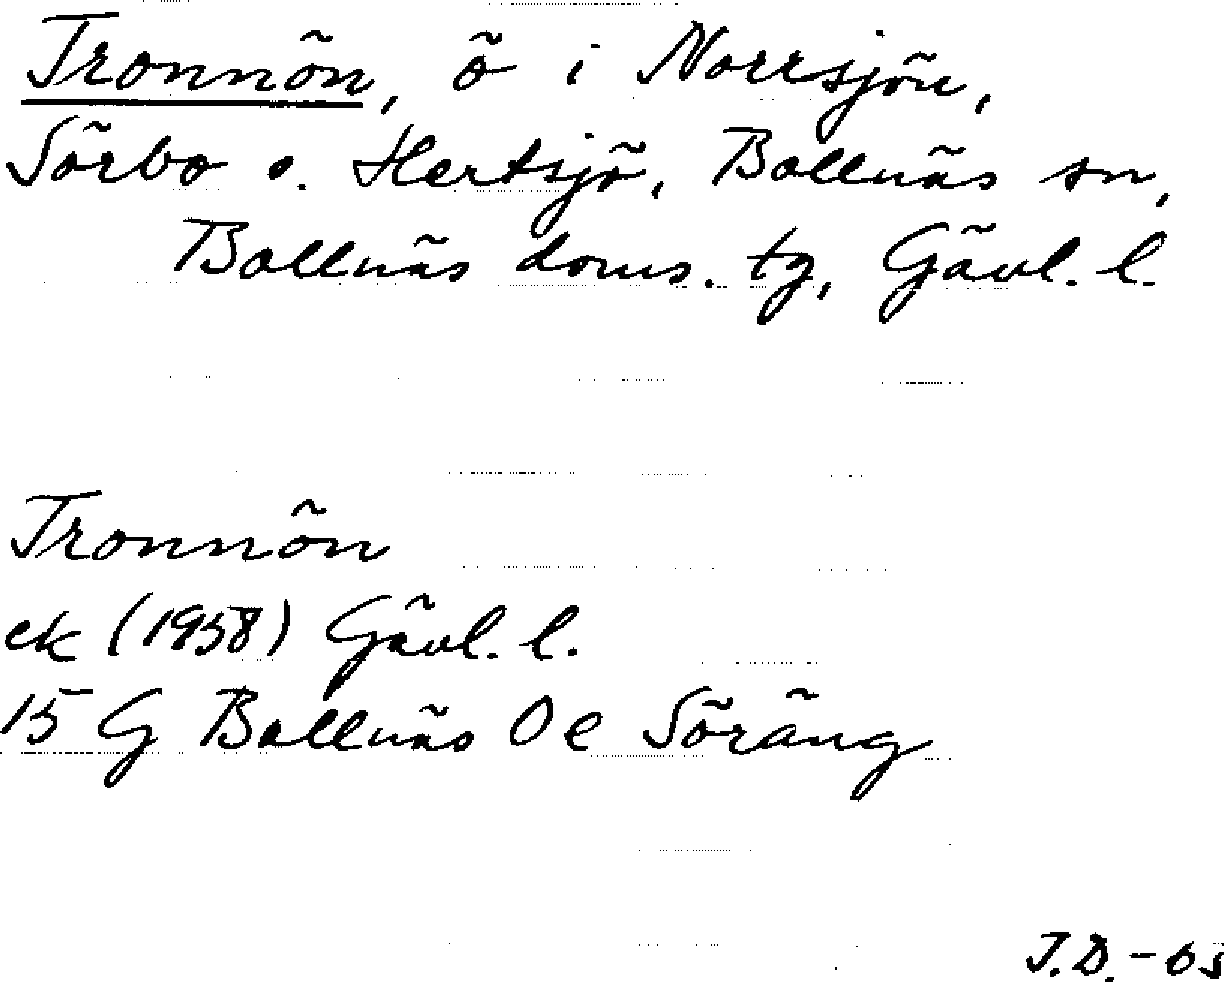 Tronnön, ö i Norrsjön,
Sörbo o. Hertsjö, Bollnäs sn,
Bollnäs doms. tg, Gävl. l.
Tronnön
ek (1958) Gävl. l.
15 G Bollnäs 0 e Söräng
J.D.-65